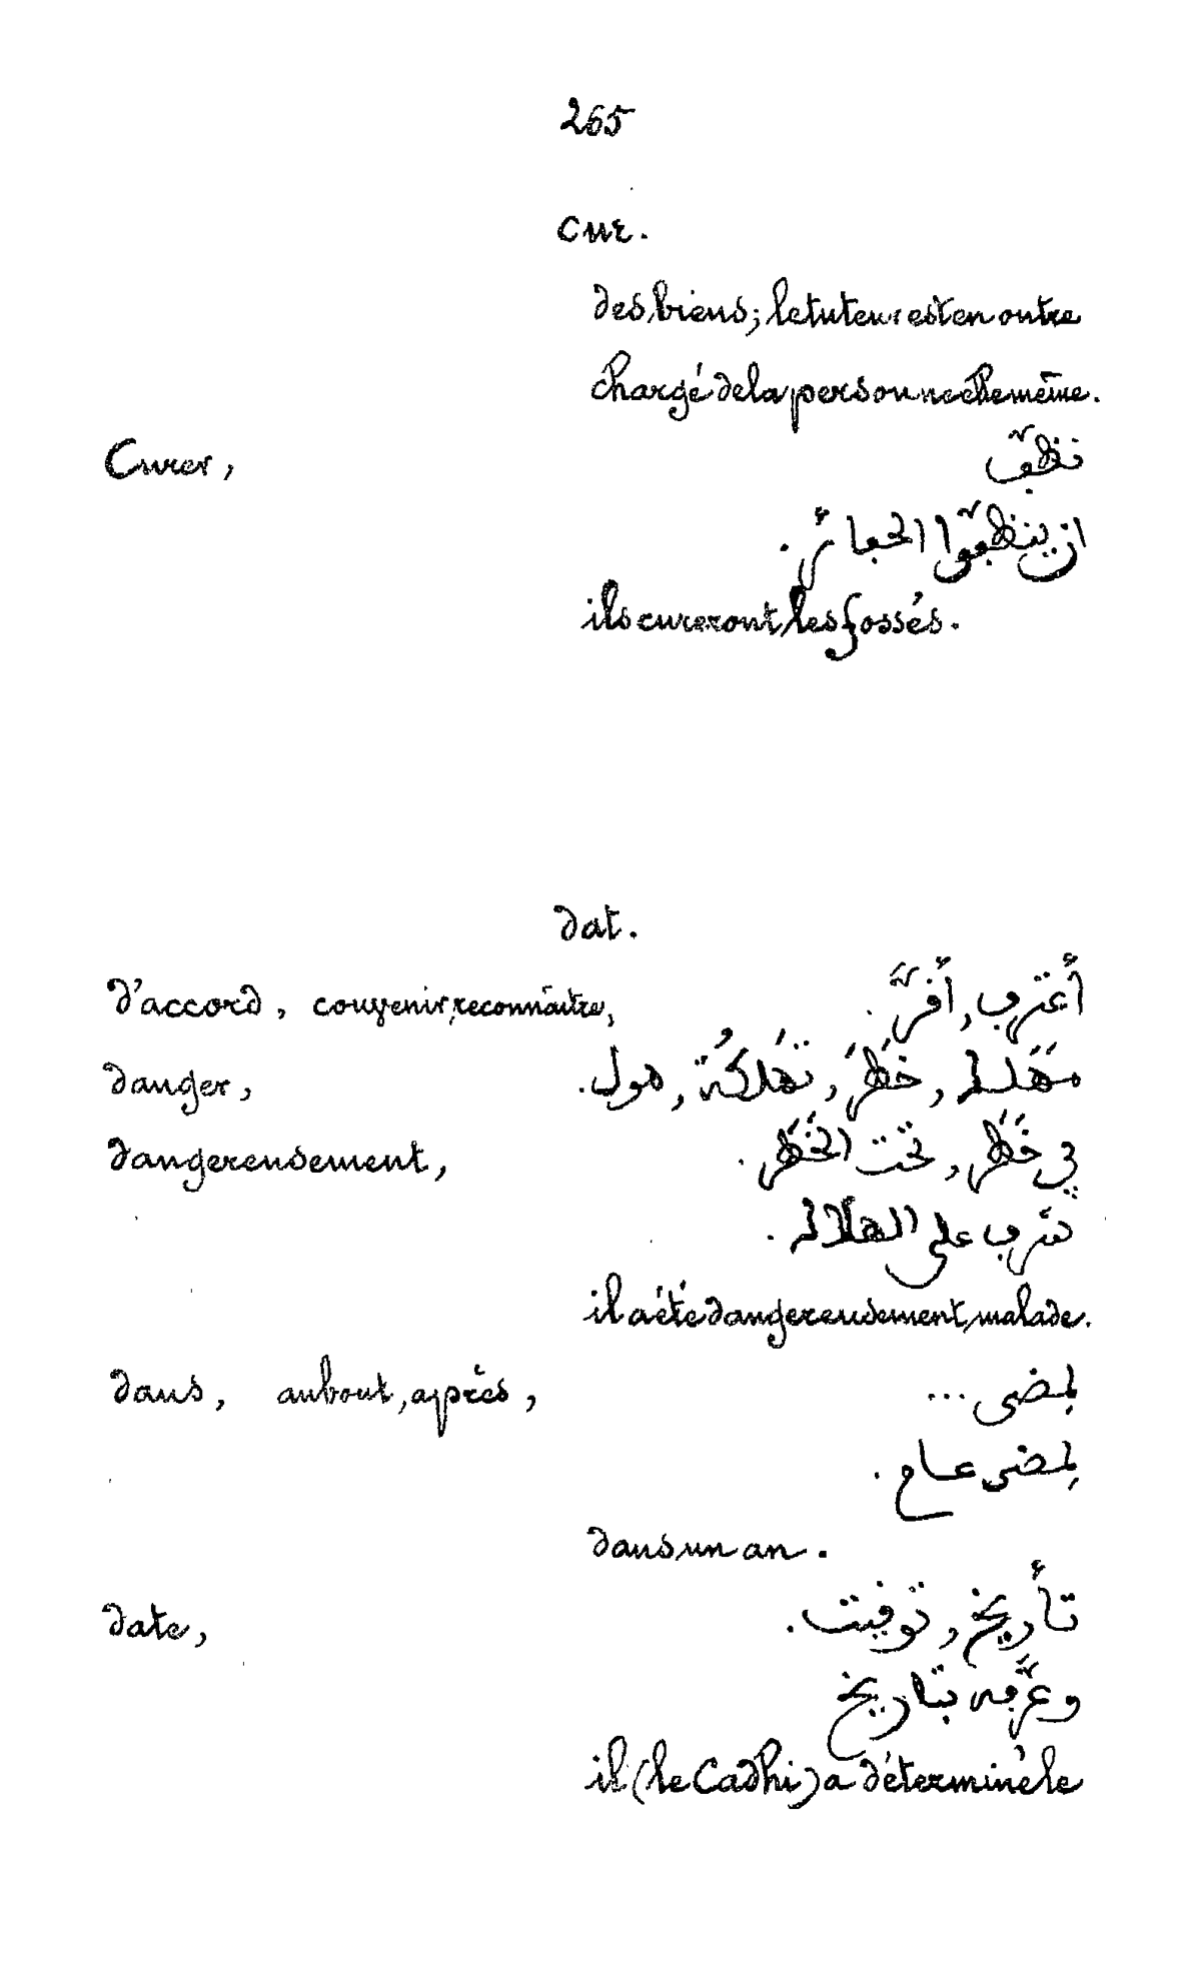 265
cur.
des biens; le tuteur est en outre
chargé de la personne elle même.
Curer, نظّف
ان ينظّفوا الحفائر.
ils cureront les fossés.
dat.
d'accord, convenir, reconnaître, أعترف, أقرّ.
danger, مَهَلك, خَطَر, تهَلُكة, هول.
dangereusement, في خَطَر, تحت الخَطَر.
شرف على الهلاك.
il a été dangereusement malade.
dans, au bout, après, لمضى ...
لمضى عام.
dans un an.
date, تأريخ, توقيت.
وعرّفه بتاريخ
il (le Cadhi) a déterminé le